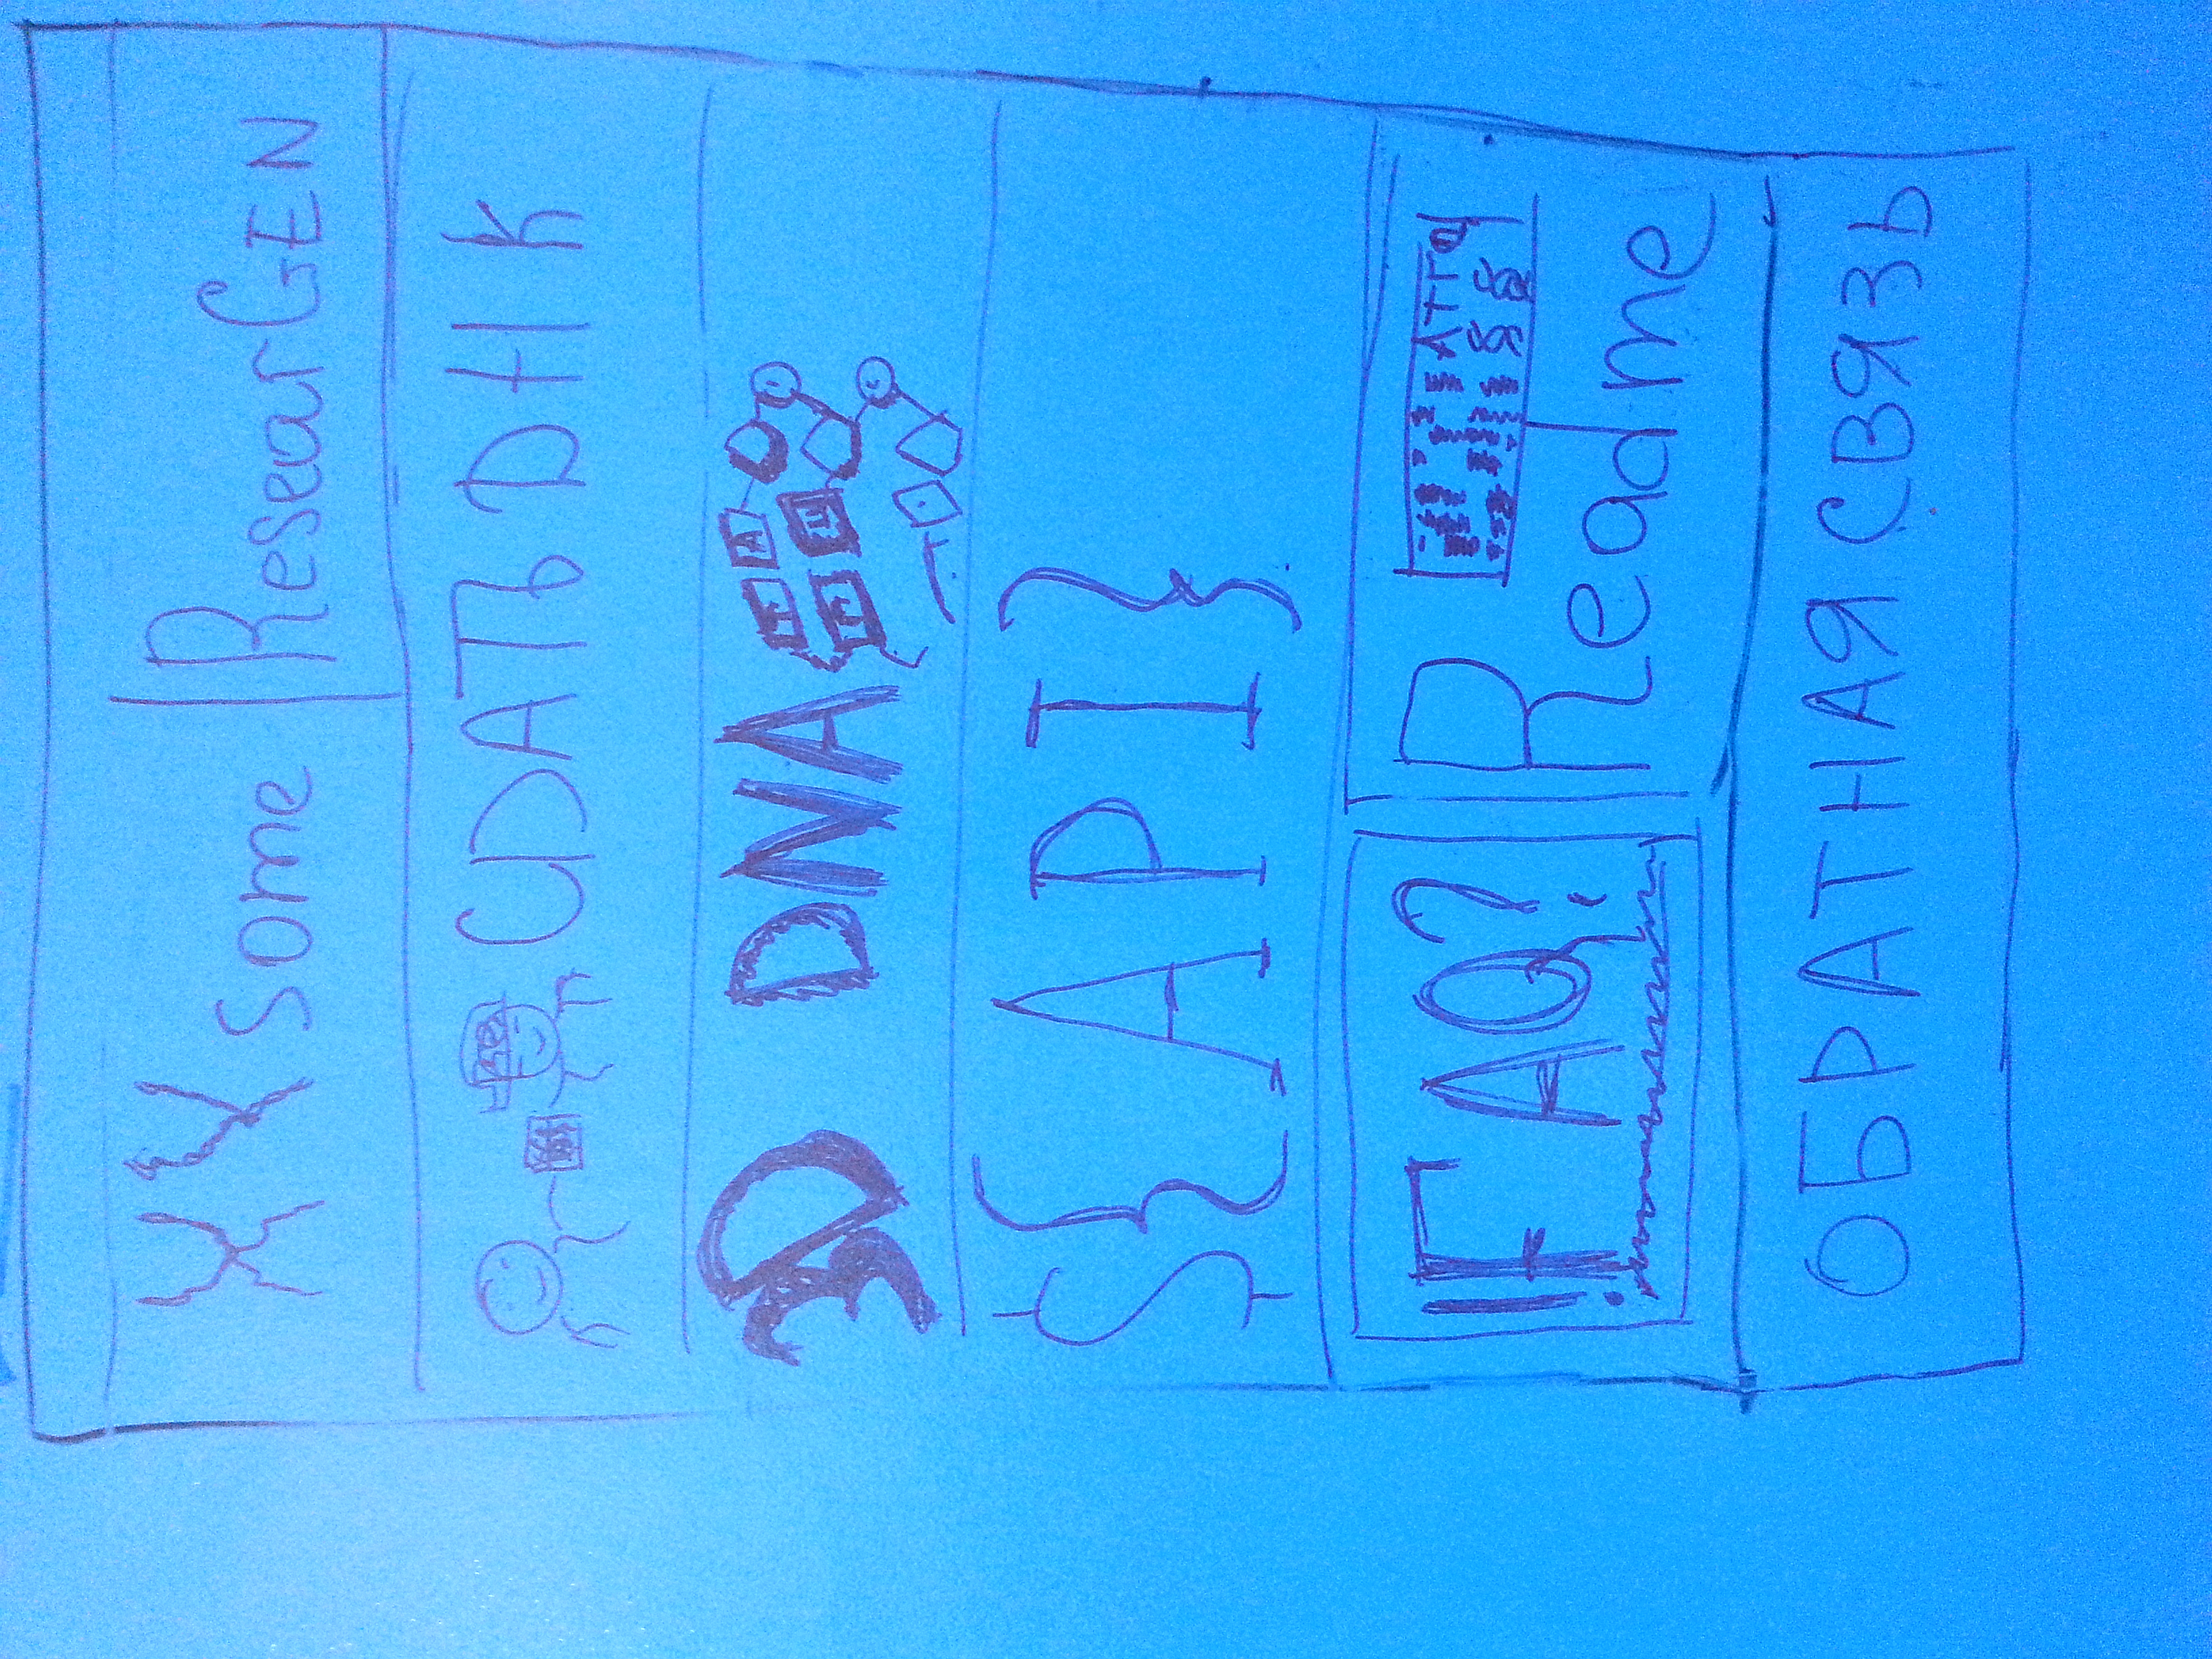 XYsome ResearGEN
СДАТЬ DНК
3D DNA
A
${API}
!FAQ? Readme
ATTG
ОБРАТНАЯ СВЯЗЬ